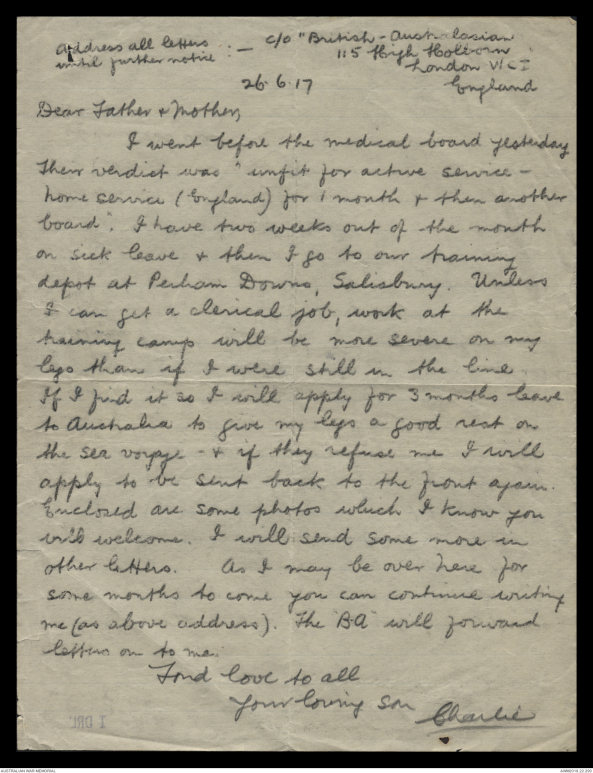 Address all letters
until further notice :— c/o "British-Australasian
115 High Holborn
London W C I
England
26.6.17
Dear Father & Mother,
I went before the medical board yesterday
Their verdict was "unfit for active service -
home service (England) for 1 month & then another
board". I have two weeks out of the month
on sick leave & then I go to our training
depot at Perham Downs, Salisbury. Unless
I can get a clerical job, work at the
training camp will be more severe on my
legs than if I were still in the line.
If I find it so I will apply for 3 months leave
to Australia to give my legs a good rest on
the sea voyage - & if they refuse me I will
apply to be sent back to the front again.
Enclosed are some photos which I know you
will welcome. I will send some more in
other letters. As I may be over here for
some months to come you can continue writing
me (as above address). The "BA" will forward
letters on to me.
Fond love to all
Your loving son
Charlie
1 DRL
AUSTRALIAN WAR MEMORIAL